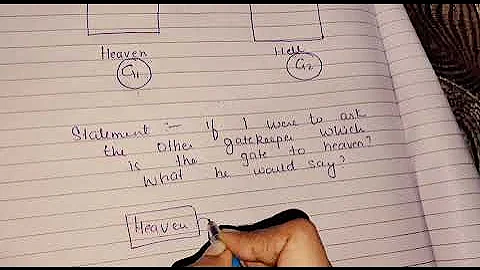 Heaven Hell
G1 G2
Statement :- If I were to ask
the other gatekeeper which
is the gate to heaven?
What he would say?
Heaven